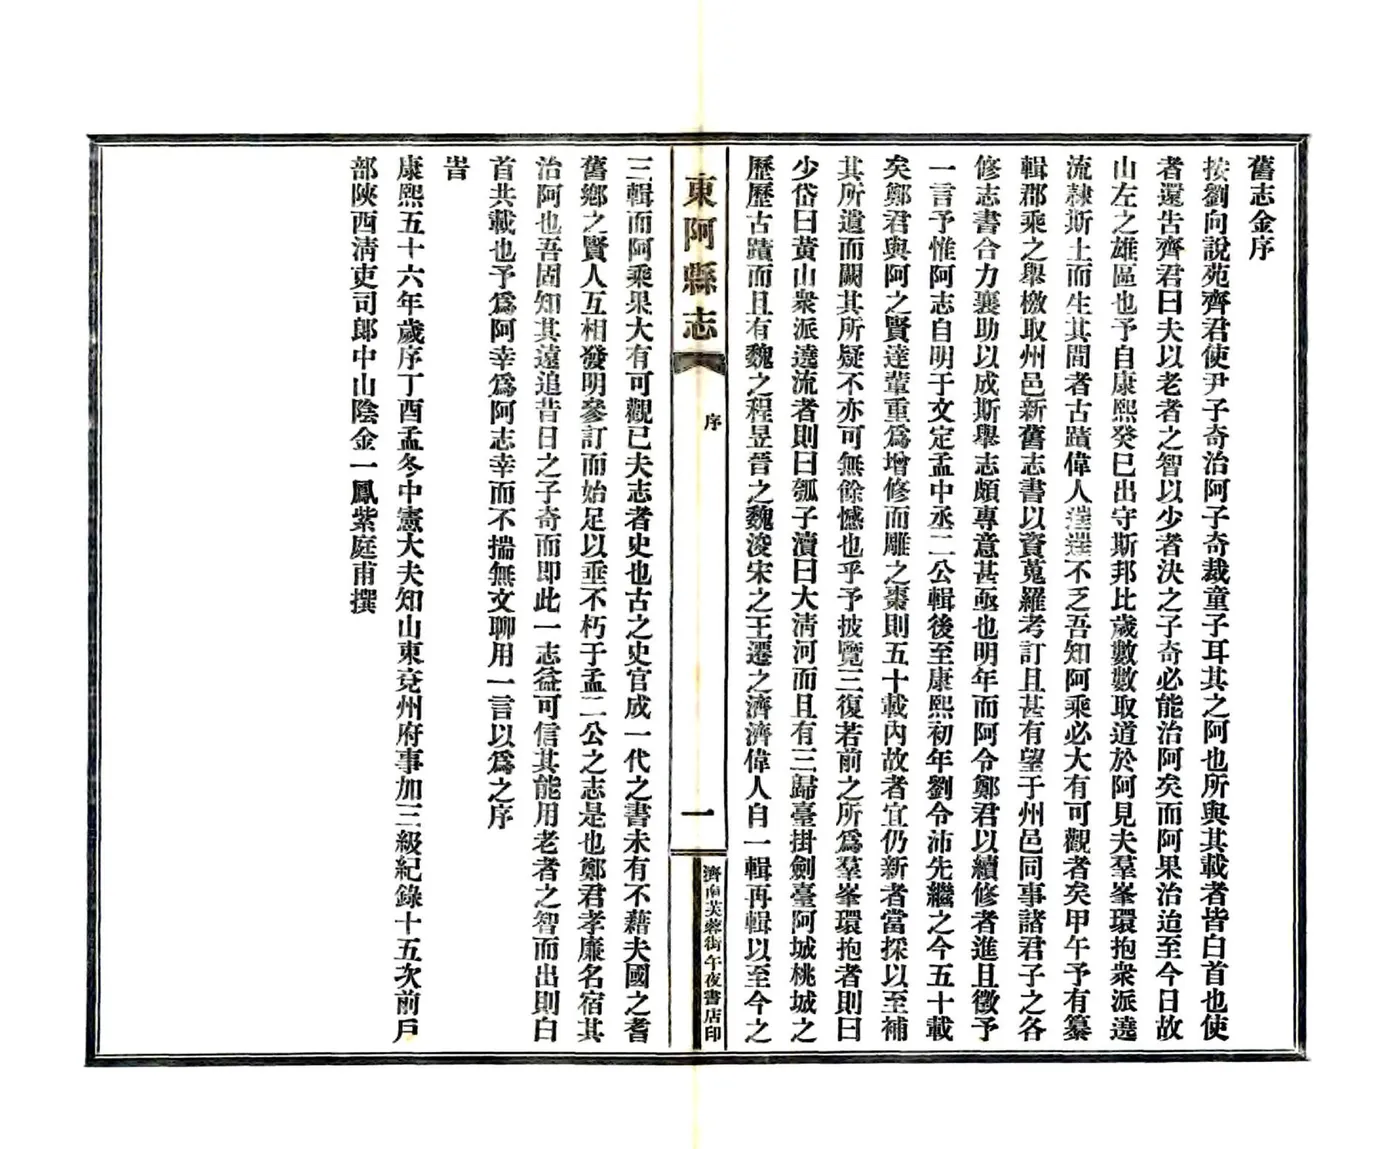 舊志金序
按劉向說苑齊君使尹子奇治阿子奇裁童子耳其之阿也所與其載者皆白首也使
者還吿齊君曰夫以老者之智以少者決之子奇必能治阿矣而阿果治迨至今日故
山左之雄區也予自康熙癸巳出守斯邦比歲數數取道於阿見夫羣峯環抱衆派遶
流隷斯土而生其間者古蹟偉人蓬蓬不乏吾知阿乘必大有可觀者矣甲午予有纂
輯郡乘之舉檄取州邑新舊志書以資蒐羅考訂且甚有望于州邑同事諸君子之各
修志書合力襄助以成斯舉志頗專意甚亟也明年而阿令鄭君以續修者進且徵予
一言予惟阿志自明于文定孟中丞二公輯後至康熙初年劉令沛先繼之今五十載
矣鄭君與阿之賢達輩重爲增修而雕之棗則五十載內故者宜仍新者當採以至補
其所遺而闕其所疑不亦可無餘憾也乎予披覽三復若前之所爲羣峯環抱者則曰
少岱曰黃山衆派遶流者則曰瓠子瀆曰大淸河而且有三歸臺掛劍臺阿城桃城之
歷歷古蹟而且有魏之程昱晉之魏浚宋之王遷之濟濟偉人自一輯再輯以至今之
東阿縣志
序
一
濟南芙蓉街午夜書店印
三輯而阿乘果大有可觀已夫志者史也古之史官成一代之書未有不藉夫國之耆
舊鄉之賢人互相發明參訂而始足以垂不朽于孟二公之志是也鄭君孝廉名宿其
治阿也吾固知其遠追昔日之子奇而即此一志益可信其能用老者之智而出則白
首共載也予爲阿幸爲阿志幸而不揣無文聊用一言以爲之序
旹
康熙五十六年歲序丁酉孟冬中憲大夫知山東兗州府事加三級紀錄十五次前戶
部陝西淸吏司郞中山陰金一鳳紫庭甫撰